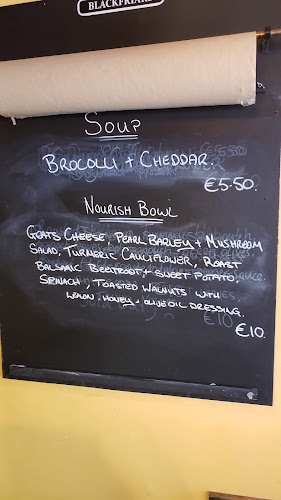 BLACKFRIARS
SOUP
BROCOLLI + CHEDDAR.
€5.50.
NOURISH BOWL
GOATS CHEESE, PEARL BARLEY + MUSHROOM
SALAD, TURMERIC CAULIFLOWER, ROAST
BALSAMIC BEETROOT + SWEET POTATO,
SPINACH, TOASTED WALNUTS WITH
LEMON, HONEY + OLIVE OIL DRESSING.
€10.